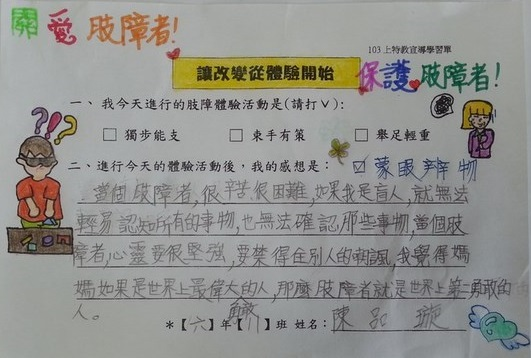 關愛肢障者!
103 上特教宣導學習單
讓改變從體驗開始
保護肢障者!
一、我今天進行的肢障體驗活動是(請打∨):
□ 獨步能支 □ 束手有策 □ 舉足輕重
二、進行今天的體驗活動後,我的感想是: ☑ 蒙眼辨物
當個肢障者,很辛苦很困難,如果我是盲人,就無法
輕易認知所有的事物,也無法確認那些事物,當個肢
障者,心靈要很堅強,要禁得住別人的嘲諷,我覺得媽
媽如果是世界上最偉大的人,那麼肢障者就是世界上第二勇敢的
人。
*【六】年【 】班 姓名: 陳 璇